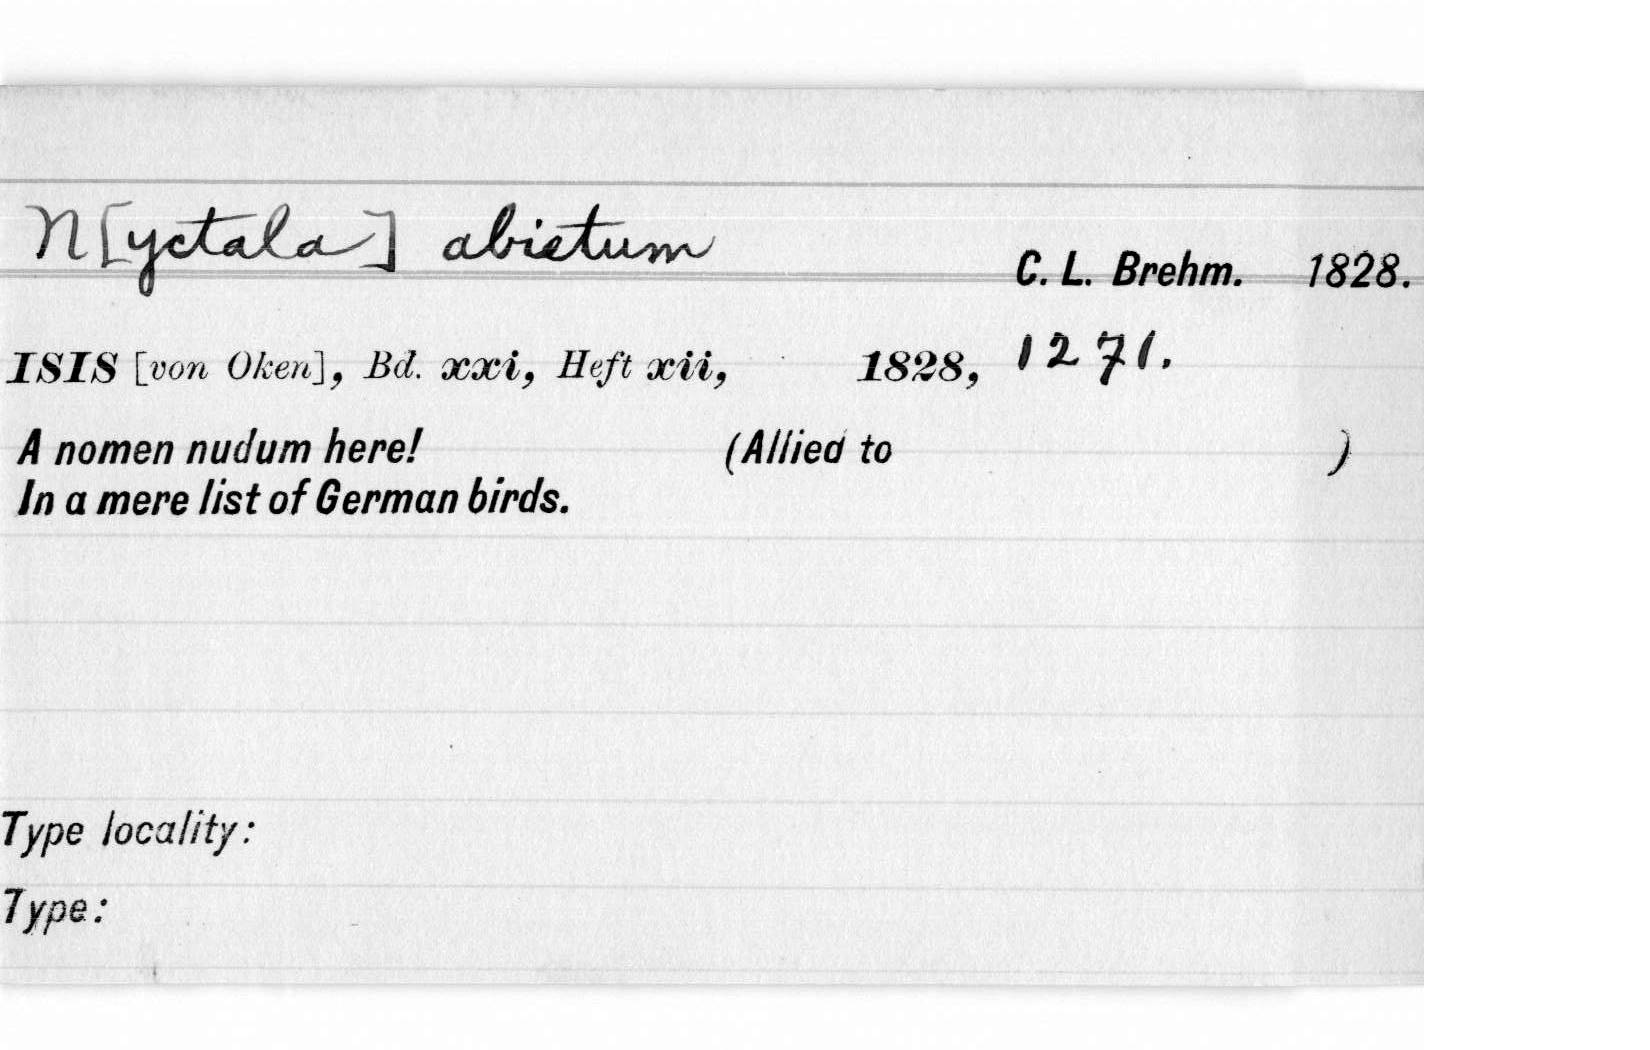 N[yctala] abietum
C. L. Brehm. 1828.
ISIS [von Oken], Bd. xxi, Heft xii, 1828, 1271.
A nomen nudum here! (Allied to )
In a mere list of German birds.
Type locality:
Type: